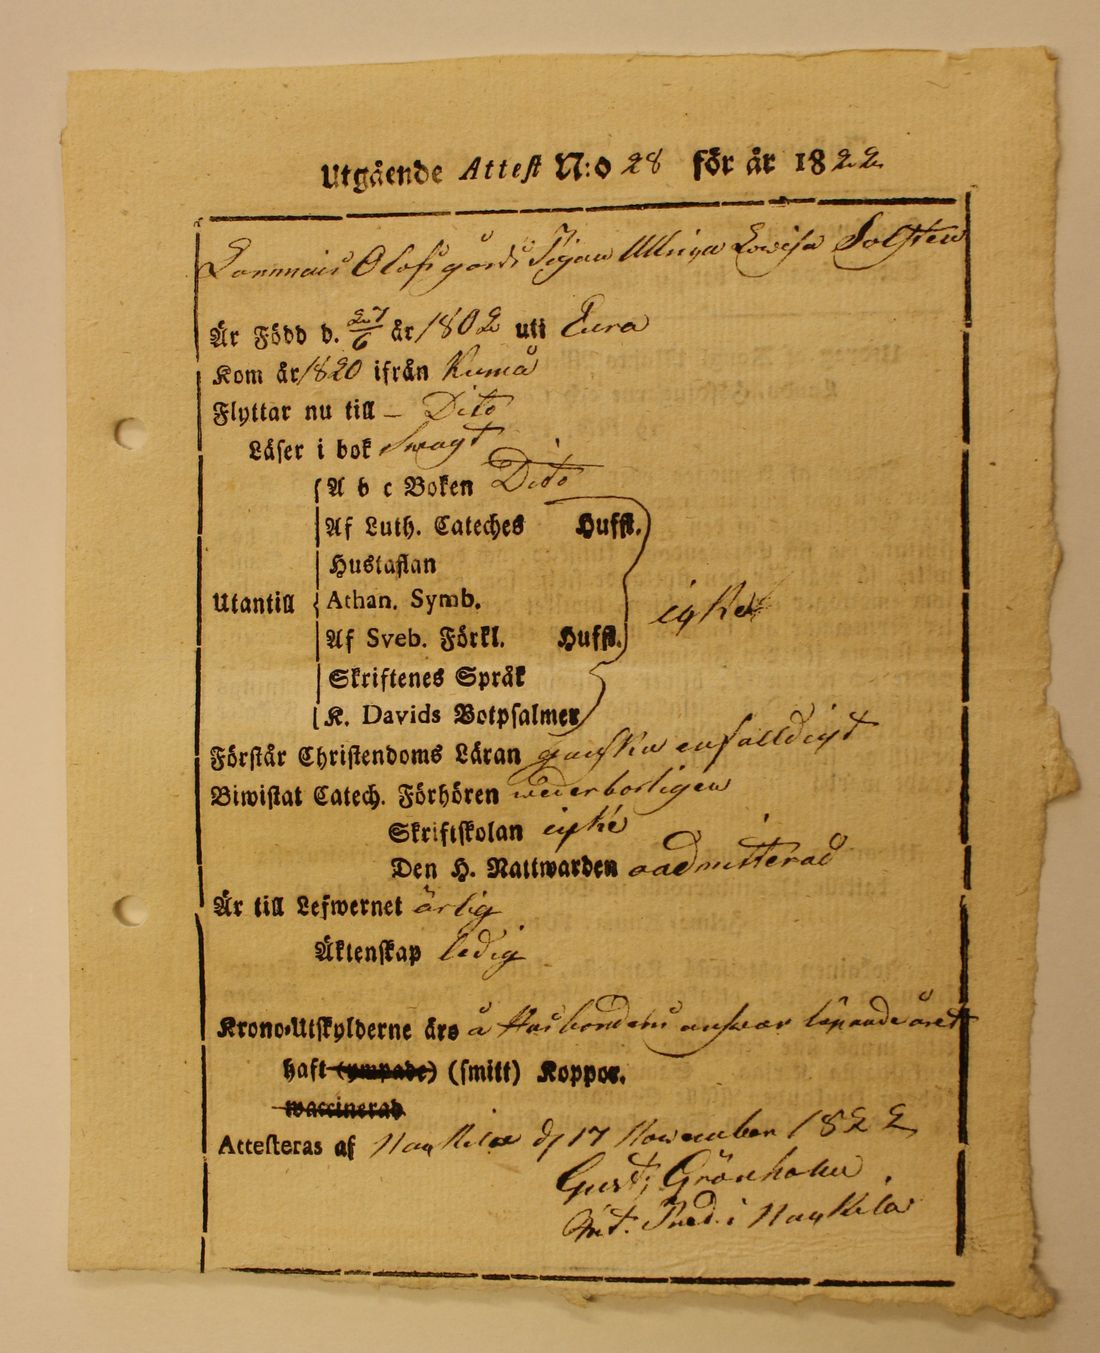 Utgående Attest N:o 28 för år 1822
Lonmais Olofsgårds Pigan Ullrica Lovisa Solsten
Är Född d. 27/6 år 1802 uti Eura
Kom år 1820 ifrån Kumå
Flyttar nu till – Dito
Läser i bok Swagt
A b c Boken Dito
Af Luth. Cateches Hufſt.
Hustaflan
Utantill Athan. Symb. icke
Af Sveb. Förkl. Hufſt.
Skriftenes Språk
K. Davids Botpsalmer
Förstår Christendoms Läran ganska enfalldigt
Biwistat Catech. Förhören wederborligen
Skriftskolan icke
Den H. Nattwarden oadmitterad
Är till Lefwernet ärlig
Äktenskap ledig
Krono-Utskylderne äro å Husbondens answar löpande året
haft (ympade) (smitt) Koppor.
waccinerad
Attesteras af Nackila d 17 November 1822
Gust. Grönholm
Pred. i Nackila